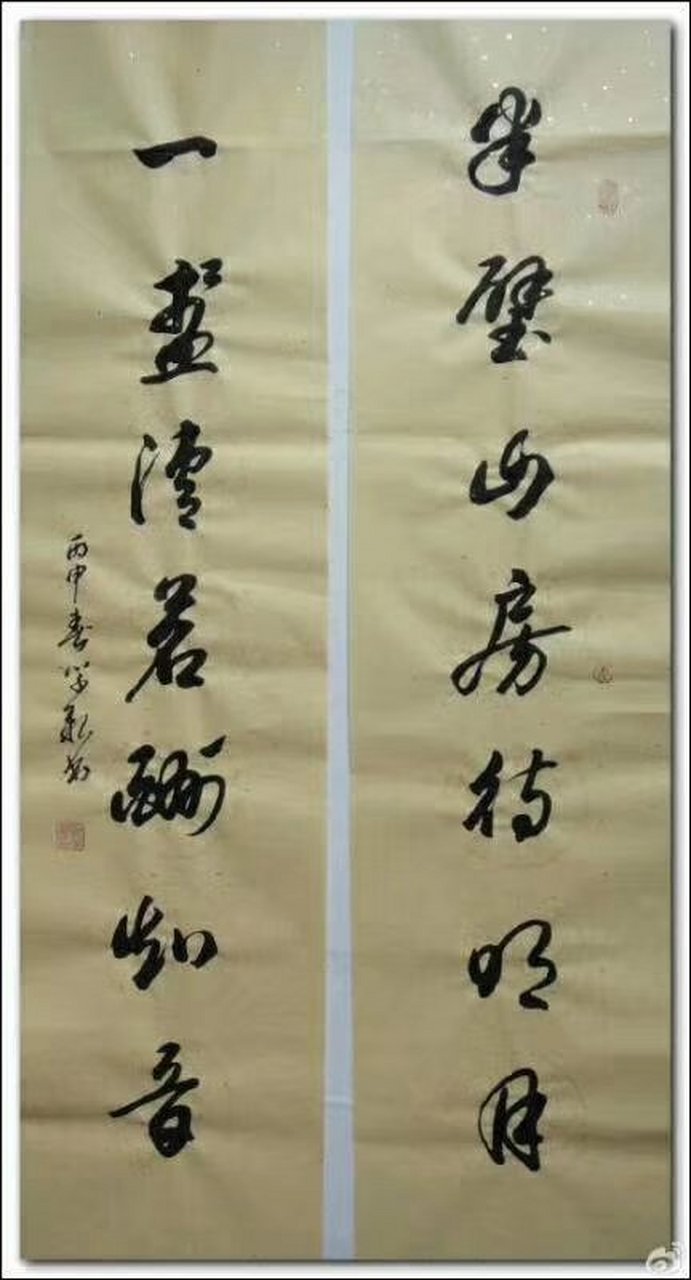 半壁山房待明月
一盏清茗酬知音
丙申春